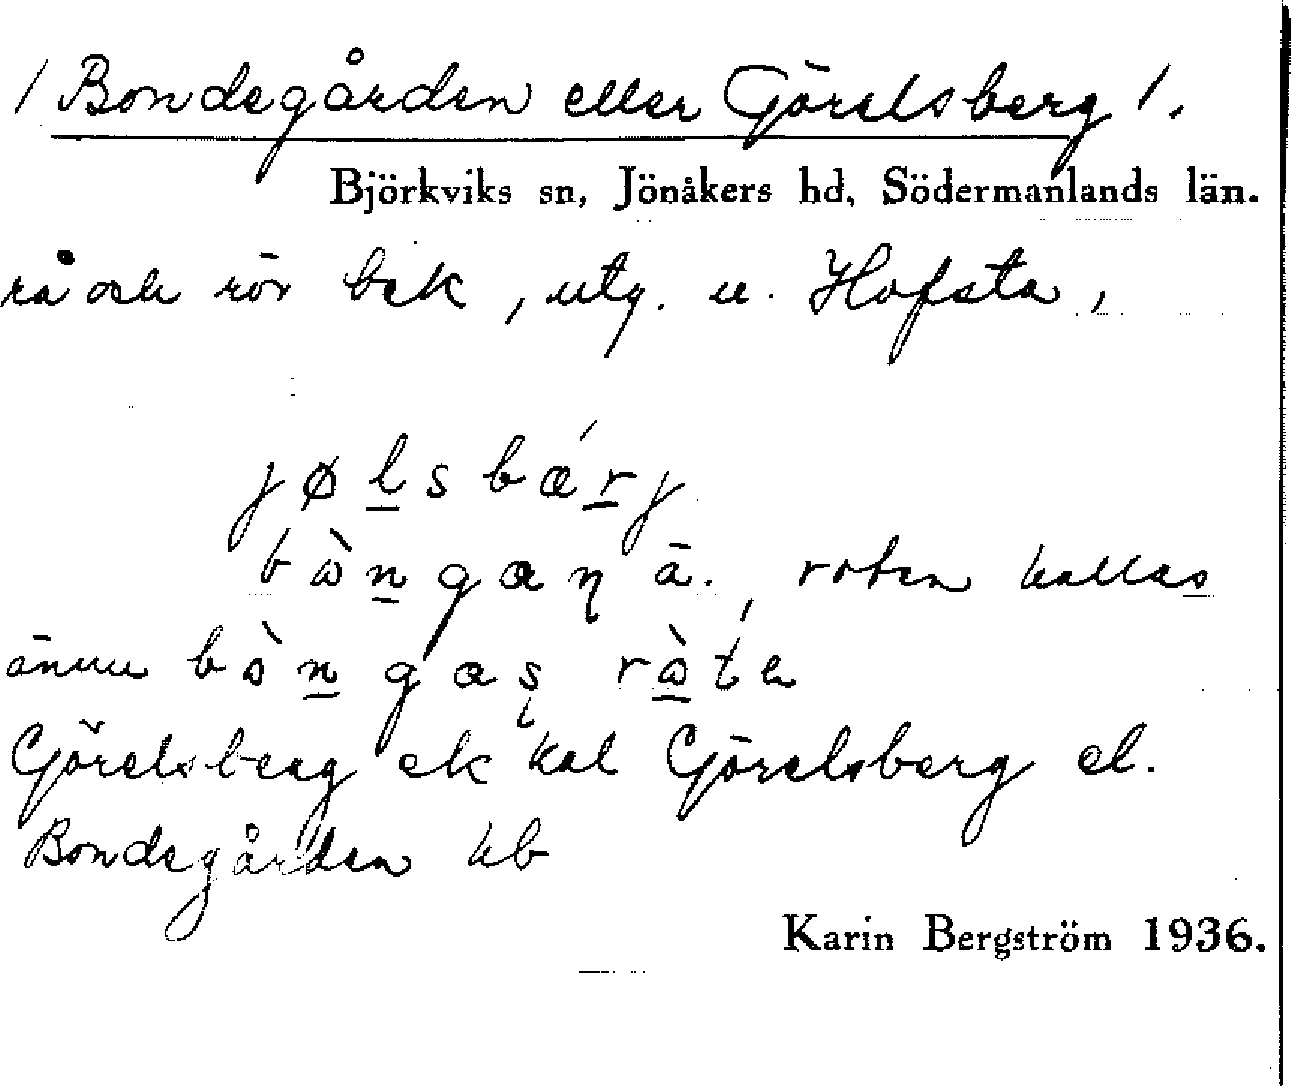 / Bondegården eller Görelsberg /.
Björkviks sn, Jönåkers hd, Södermanlands län.
rå och rör bek, utg. u. Hofsta,
jøḻsbæ´ṟj
roten kallas
ännu
Görelsberg ek kal Görelsberg el.
Bondegården kb
Karin Bergström 1936.